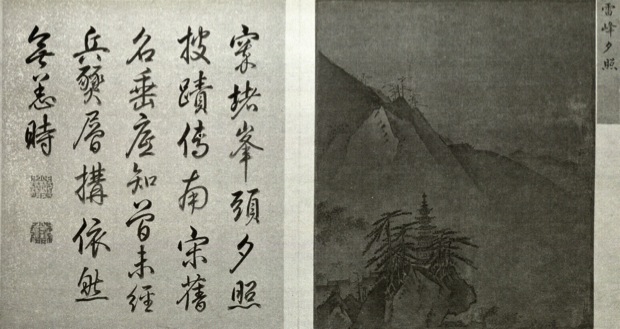 雷峰夕照
窣堵峯頭夕照
披蹟傳南宋舊
名垂底知曾未經
兵燹層搆依然
無恙時